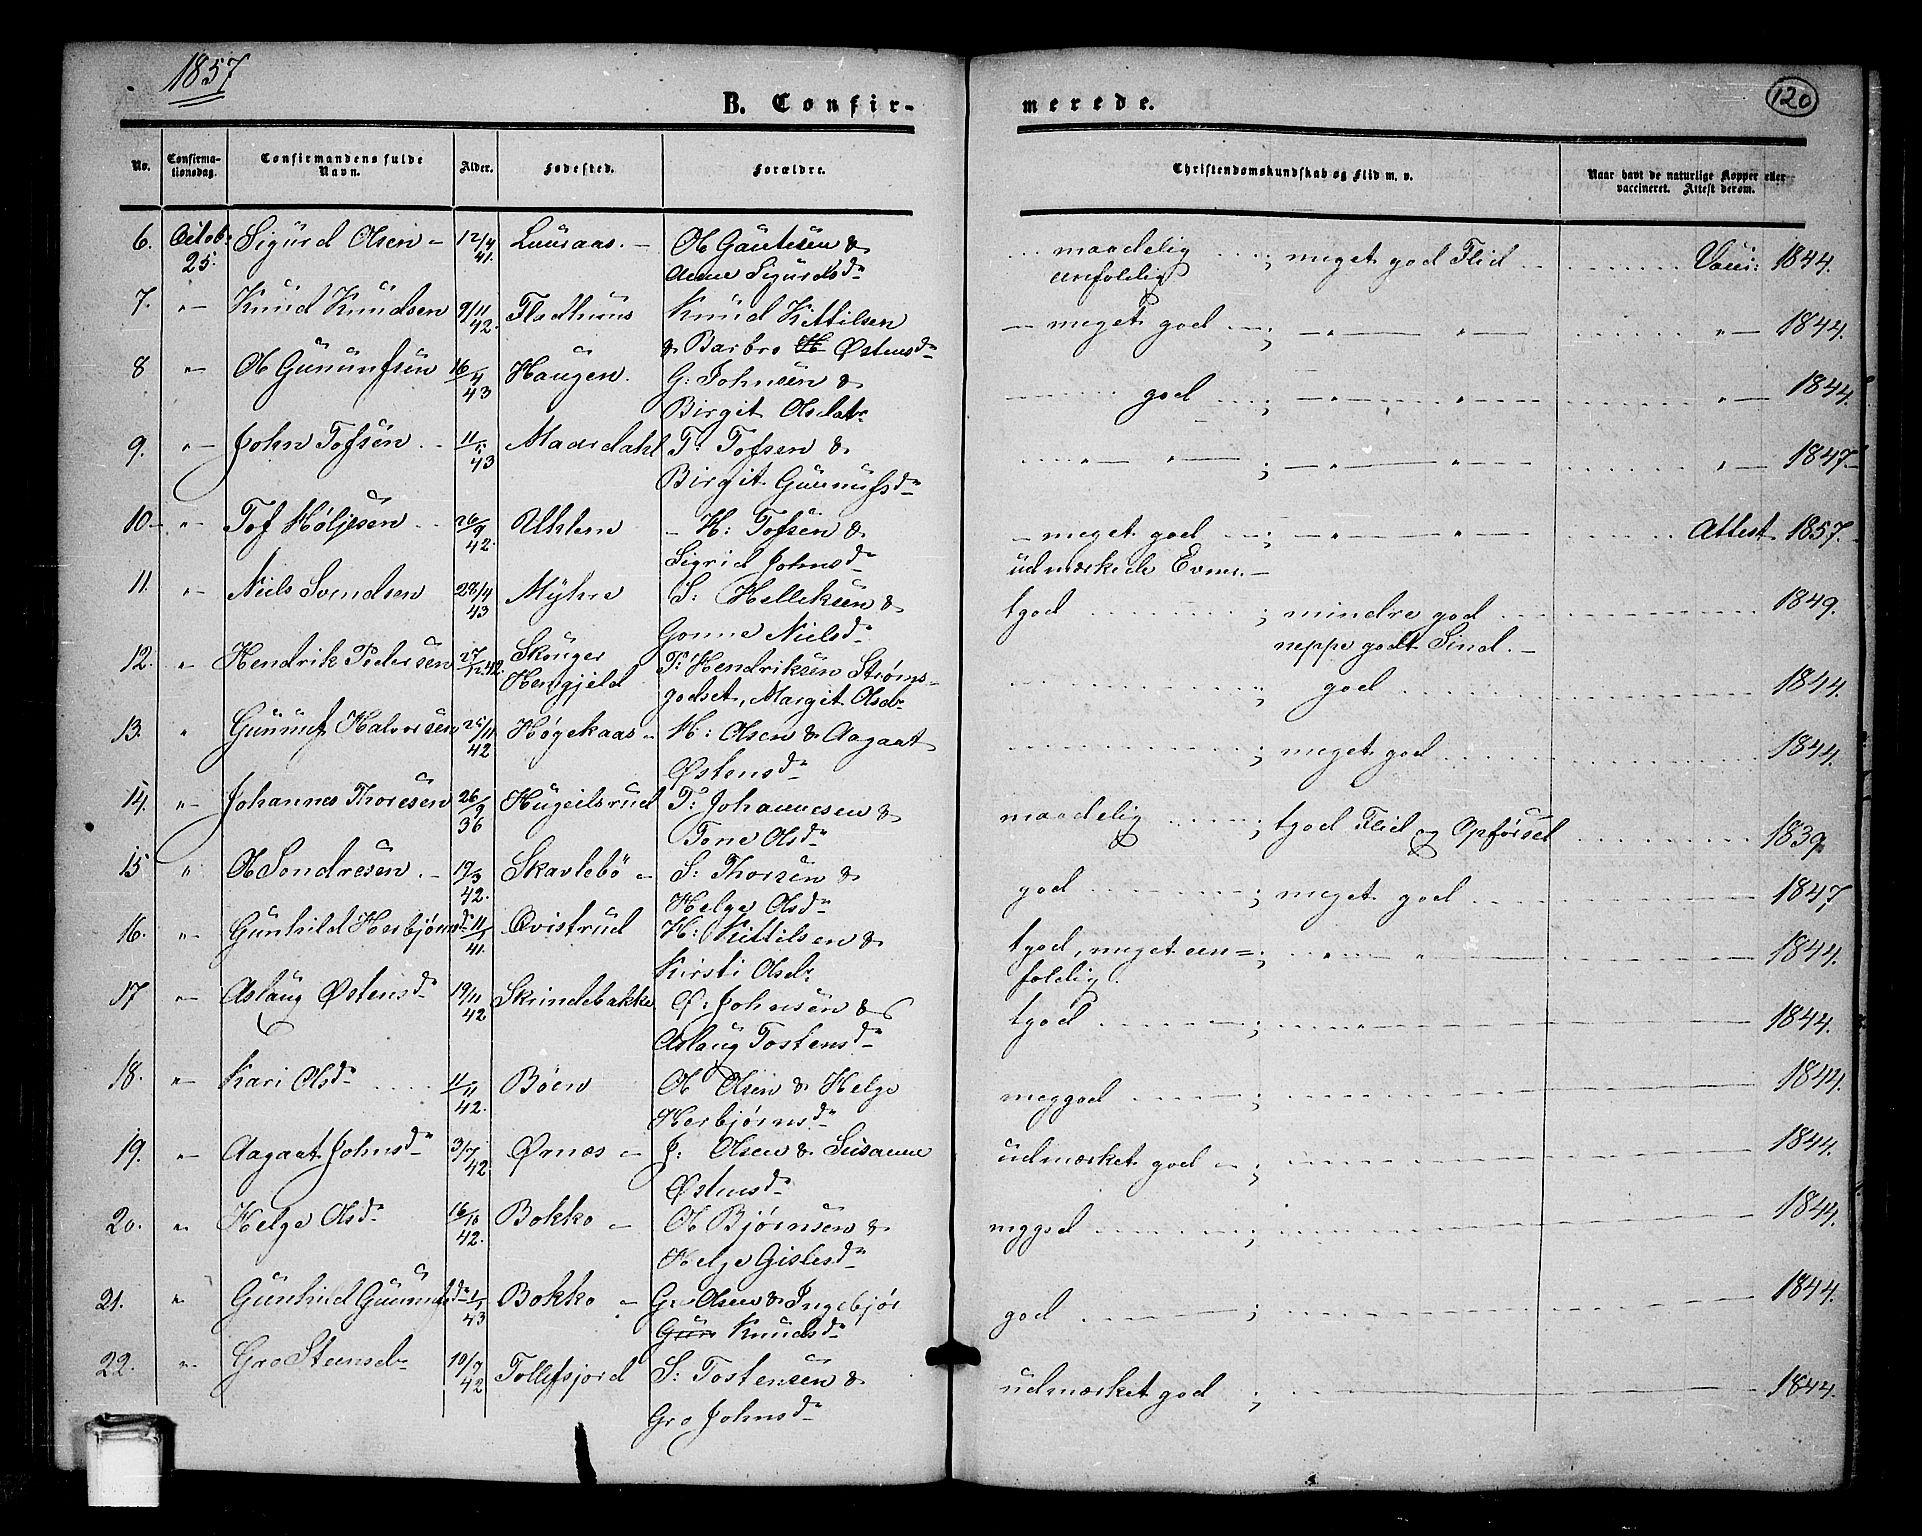 1857
120
B. Confir-
merede.
No.
Confirma-
tionsdag.
Confirmandens fulde
Navn.
Alder.
Fødested.
Forældre.
Christendomskundskab og Flid m. v.
Naar havt de naturlige Kopper eller
vaccineret. Attest derom.
6. Octob. Sigurd Olsen - 12/4 Luuraas. - Ol Gautesen &
25. 41. Anne Sigurdsdr
maadelig ; meget god Flid Vacci: 1844.
eenfoldig
7. " Knud Knudsen 9/11 42. Fladhuus Knud Kittilsen
& Barbro H Østensdr
meget god ; " " " 1844.
8 " Ol Gunnufsen 16/4 43 Haugen. G: Johnsen &
Birgit Olsdatr
god ; " " " 1844.
9. " John Tofsen 11/ 43 Maardahl T: Tofsen &
Birgit Gunnufsdr
" " ; " " " 1847.
10. " Tof Høljesen 26/9 42. Uhlen - H: Tofsen &
Sigrid Johnsdr
meget god ; " " Attest 1857.
11. " Niels Svendsen 28/4 43 Myhre S: Helleksen &
Gonne Nielsdr
udmærkede Evner. -
tgod ; mindre god 1849.
neppe godt Sind. -
12. " Hendrik Pedersen 27/12 42. Skouger
Hongjeld
P: Hendriksen Strøms-
godset, Margit Olsdr
; god 1844.
13. " Gunnuf Halvorsen 25/11 42 Høgekaas H: Olsen & Aagaat
Østensdr
; meget god 1844.
14. " Johannes Thoresen 26/9 36 Hugeilsrud T: Johannesen &
Tone Olsdr
maadelig ; tgod Flid og Opførsel 1839
15 " Ol Sondresen. - 19/3 42. Skavlebö - S: Thorsen &
Helge Olsdr
god ; meget god 1847
16. " Gunhild Herbjørnsdr 11/ 41. Qvistrud H: Kittilsen &
Kirsti Olsdr
tgod, meget een- ; " " 1844.
foldig.
17 " Aslaug Østensdr 19/11 42 Skrindebakke Ø: Johnsen &
Aslaug Tostensdr
tgod ; " 1844.
18. " Kari Olsdr 11/11 42. Böen Ol Olsen & Helge
Herbjørnsdr
meggod ; 1844.
19. " Aagaat Johnsdr 3/7 42. Ørnæs - J: Olsen & Susanne
Østensdr
udmærket god ; 1844.
20. " Helge Olsdr 16/10 42. Bokko - Ol Bjørnsen &
Helge Gislesdr
mggod ; 1844.
21. " Gunhild Gunnufsdr 1/1 43 Bokko - G: Olsen & Ingebjør
Gun Knudsdr
god ; 1844.
22. " Gro Steensdr 10/7 42 Tollefsjord S: Tostensen &
Gro Johnsdr
udmærket god ; 1844.